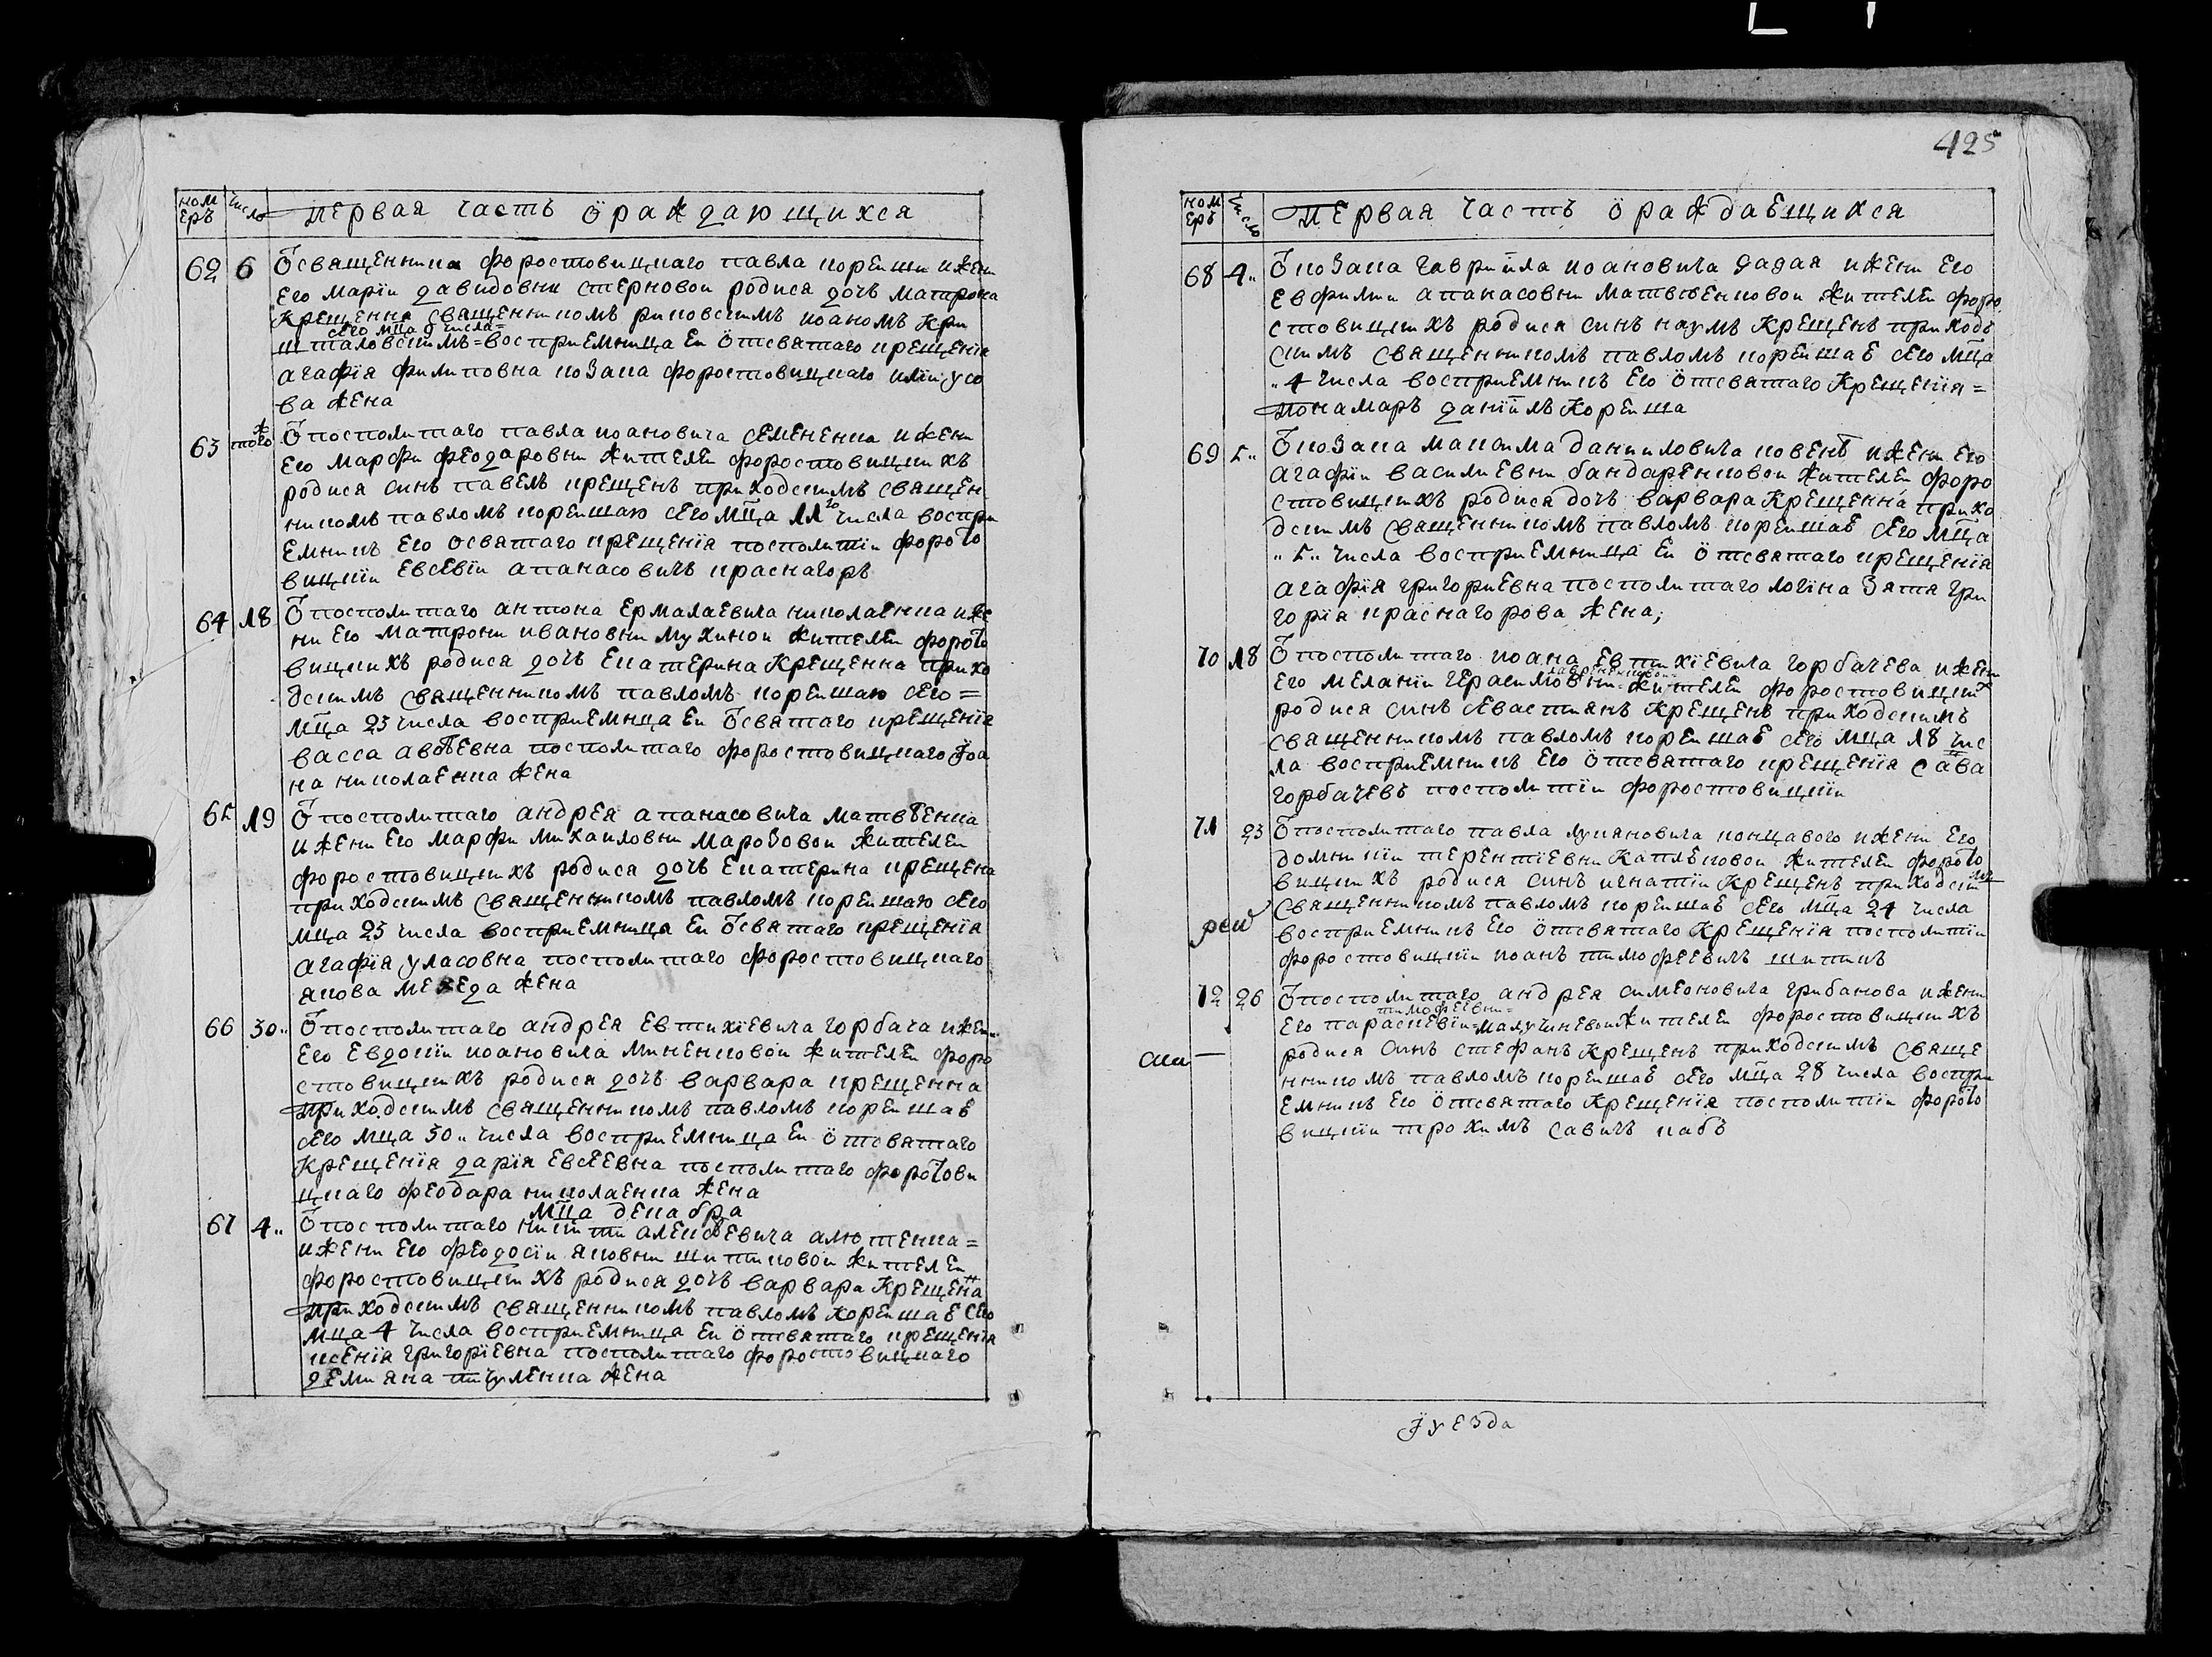 425
номеръ число первая часть о раждающихся
62 6 Ѿ священника форостовицкаго павла корейши и жени
его марїи давидовни стерновои родися дочъ матрона
крещенна священникомъ риповскимъ иоаномъ кри
сего мца 9 числа=
шталовскимъ= восприемница еи ѿ святаго крещенїя
агафїя филиповна козака форостовицкаго
ва жена
63 того ж Ѿ посполитаго павла иоановича семененка и жени
его марфи феодаровни жителеи форостовицкихъ
родися синъ павелъ крещенъ приходскимъ священ
никомъ павломъ корейшаю сего мца 11го числа воспри
емникъ его о святаго крещенїя посполитїи форосто
вицкїи евсевїи апанасовичъ краснагоръ
64 18 Ѿ посполитаго антона ермалаевича николаенка и же
ни его матрони ивановни мухинои жителеи форосто
вицкихъ родися дочъ екатерина крещенна прихо
дскимъ священникомъ павломъ корейшаю сего=
мца 23 числа восприемнца еи ѿ святаго крещенїя
васса авдѣевна посполитаго форостовицкаго їоа
на николаенка жена
65 19 Ѿ посполитаго андрея апанасовича матвѣенка
и жени его марфи михаиловни марозовои жителеи
форостовицкихъ родися дочъ екатерина крещена
приходскимъ священникомъ павломъ корейшаю сего
мца 23 числа восприемница еи ѿ святаго крещенїя
агафїя уласовна посполитаго форостовицкаго
якова жена
66 30.. Ѿ посполитаго андрея евтихїевича горбача и жени
его евдокїи иоановича миненковои жителеи форо
стовицкихъ родися дочъ варвара крещенна
приходскимъ священникомъ павломъ корейшаѣ
сего мца 30.. числа восприемница еи ѿ святаго
крещенїя дарїя евсеевна посполитаго форостови
цкаго феодара николаенка жена
мца декабра
67 4.. Ѿ посполитаго никити алексѣевича алютенка=
и жени его феодосїи яковни шитиковои жителеи
форостовицкихъ родися дочъ варвара крещенна
приходскимъ священникомъ павломъ корейшаѣ сего
мца 4 числа восприемница еи ѿ святаго крещенїя
ксенїя григорїевна посполитаго форостовицкаго
демияна жена
номеръ число первая часть о раждаещихся
68 4.. Ѿ козака гавриила иоановича дадая и жени его
евфимии апанасовни матвѣенковои жителеи форо
стовицкихъ родися синъ наумъ крещенъ приход
скимъ священникомъ павломъ корейшаѣ сего мца
.. 4 числа восприемникъ его ѿ святаго крещенїя=
понамаръ данїилъ корейша
69 5.. Ѿ козака максима данииловича и жени его
агафїи василиевни бандаренковои жителеи форо
стовицкихъ родися дочъ варвара крещенна прихо
дскимъ священникомъ павломъ корейшаѣ сего мца
.. 5.. числа восприемница еи ѿ святаго крещенїя
агафїя григориевна посполитаго логина зятя гри
горїя краснагорова жена;
70 18 Ѿ посполитаго иоана евтихїевича горбачева и жени
его меланїи герасимовни жителеи форостовицких
родися синъ севастиянъ крещенъ приходскимъ
священникомъ павломъ корейшаѣ сего мца 18 чис
ла восприемникъ его ѿ святаго крещенїя сава
горбачевъ посполитїи форостовицкїи
71 23 Ѿ посполитаго павла лукяновича концавого и жени его
домникїи терентїевни жителеи форосто
вицкихъ родися синъ игнатїи крещенъ приходским
священникомъ павломъ корейшаѣ сего мца 24 числа
восприемникъ его ѿ святаго крещенїя посполитїи
форостовицкїи иоанъ тимофеевичъ шитикъ
72 26 Ѿ посполитаго андрея симеоновича грибанова и жени
тимофеевни=
его параскевїи= жителеи форостовицкихъ
родися синъ стефанъ крещенъ приходскимъ свяще
нникомъ павломъ корейшаѣ сего мца 28 числа воспри
емникъ его ѿ святаго крещенїя посполитїи форосто
вицкїи трохимъ савичъ кабъ
уезда